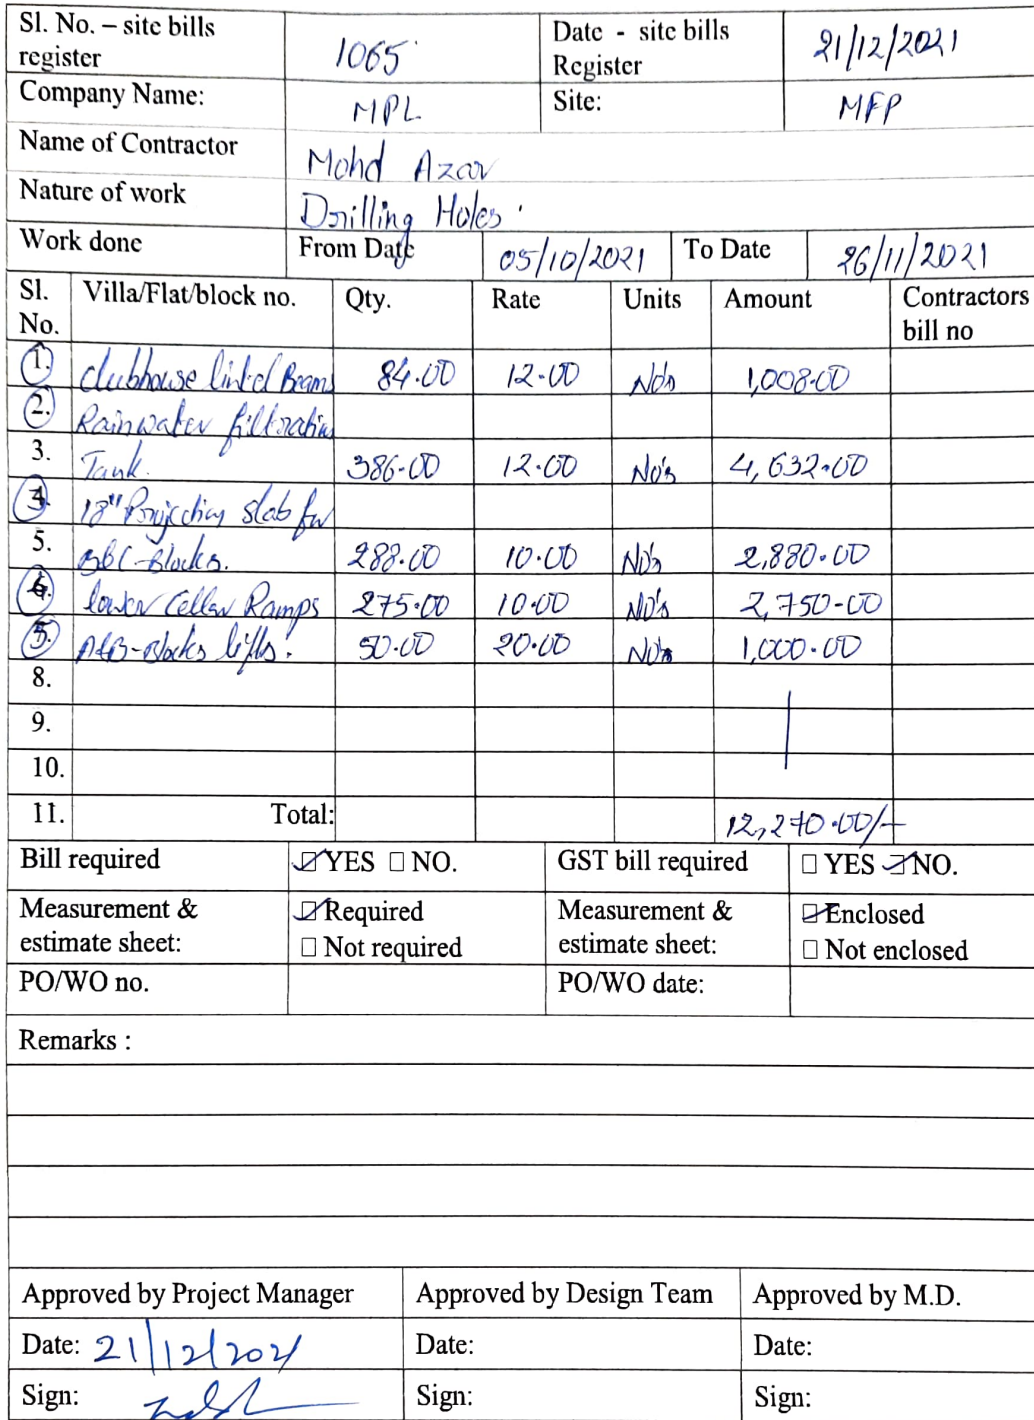 Sl. No. – site bills register 1065 Date - site bills Register 21/12/2021
Company Name: MPL Site: MFP
Name of Contractor Mohd Azar
Nature of work Drilling Holes.
Work done From Date 05/10/2021 To Date 26/11/2021
Sl. No. Villa/Flat/block no. Qty. Rate Units Amount Contractors bill no
1. Clubhouse lintel Beams 84.00 12.00 No's 1,008.00
2. Rainwater filtration
3. Tank. 386.00 12.00 No's 4,632.00
3. 18" Projection slab for
5. B&C-Blocks. 288.00 10.00 No's 2,880.00
4. lower Cellar Ramps 275.00 10.00 No's 2,750-00
5. A&B-Blocks lifts. 50.00 20.00 No's 1,000.00
8.
9.
10.
11. Total: 12,270.00/-
Bill required ☑ YES ☐ NO. GST bill required ☐ YES ☑ NO.
Measurement & estimate sheet: ☑ Required ☐ Not required Measurement & estimate sheet: ☑ Enclosed ☐ Not enclosed
PO/WO no. PO/WO date:
Remarks :
Approved by Project Manager Approved by Design Team Approved by M.D.
Date: 21/12/2021 Date: Date:
Sign: Sign: Sign: